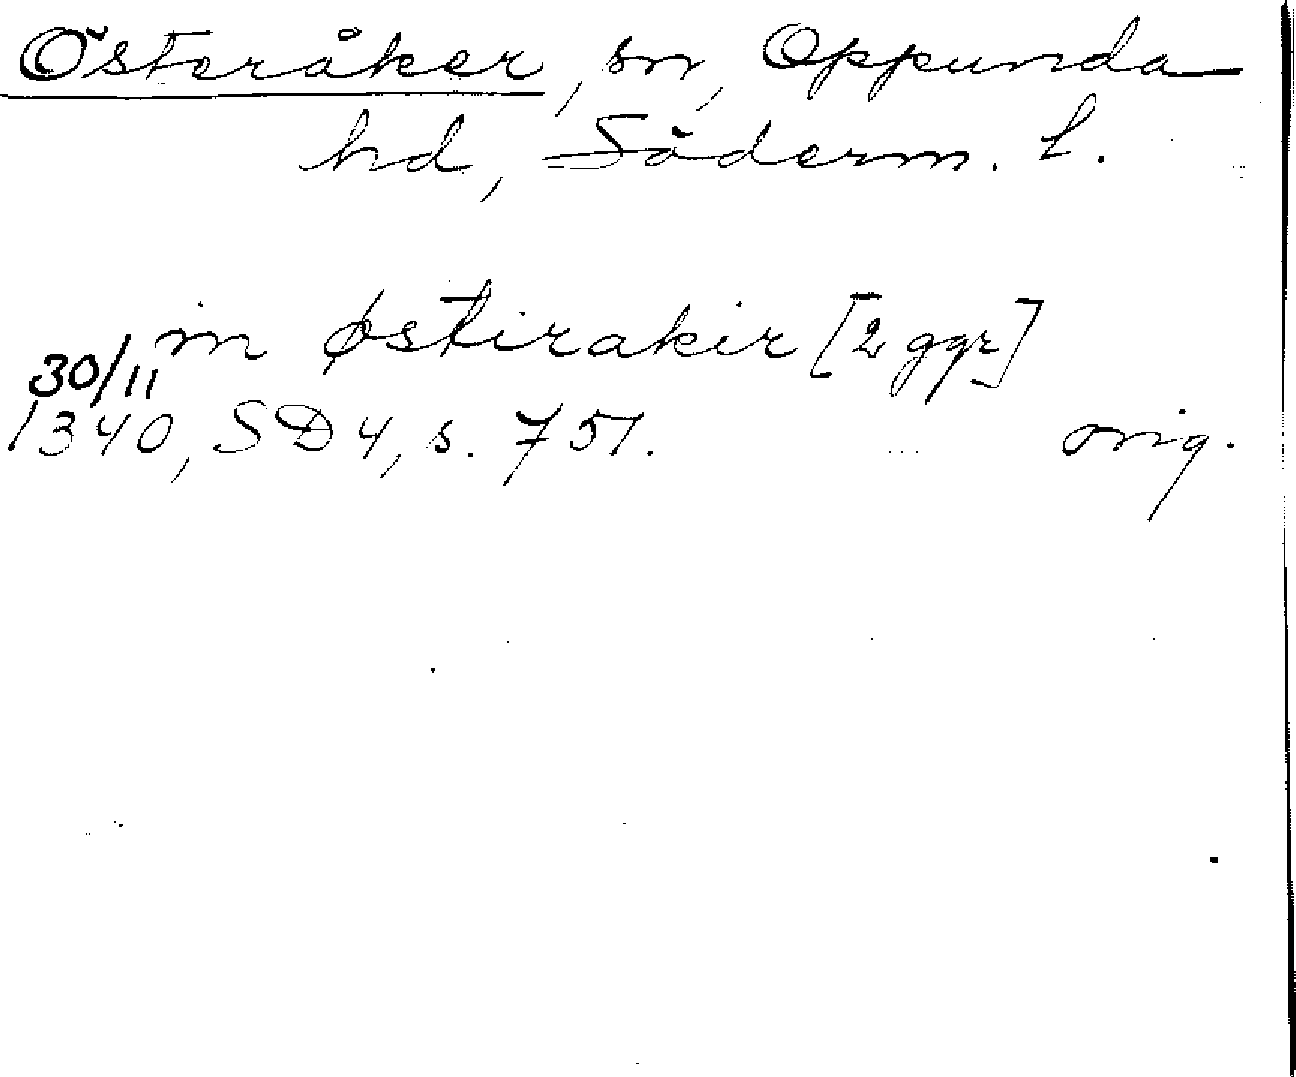 Österåker, sn, Oppunda
hd, Söderm. l.
in østirakir [2 ggr]
30/11
1340, SD 4, s. 751. orig.